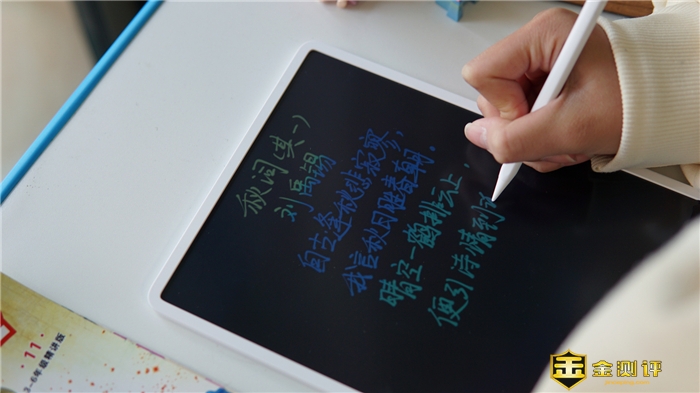 秋词(其一)
刘禹锡
自古逢秋悲寂寥,
我言秋日胜春朝。
晴空一鹤排云上,
便引诗情到
·11·
3-6年级精讲版
金测评